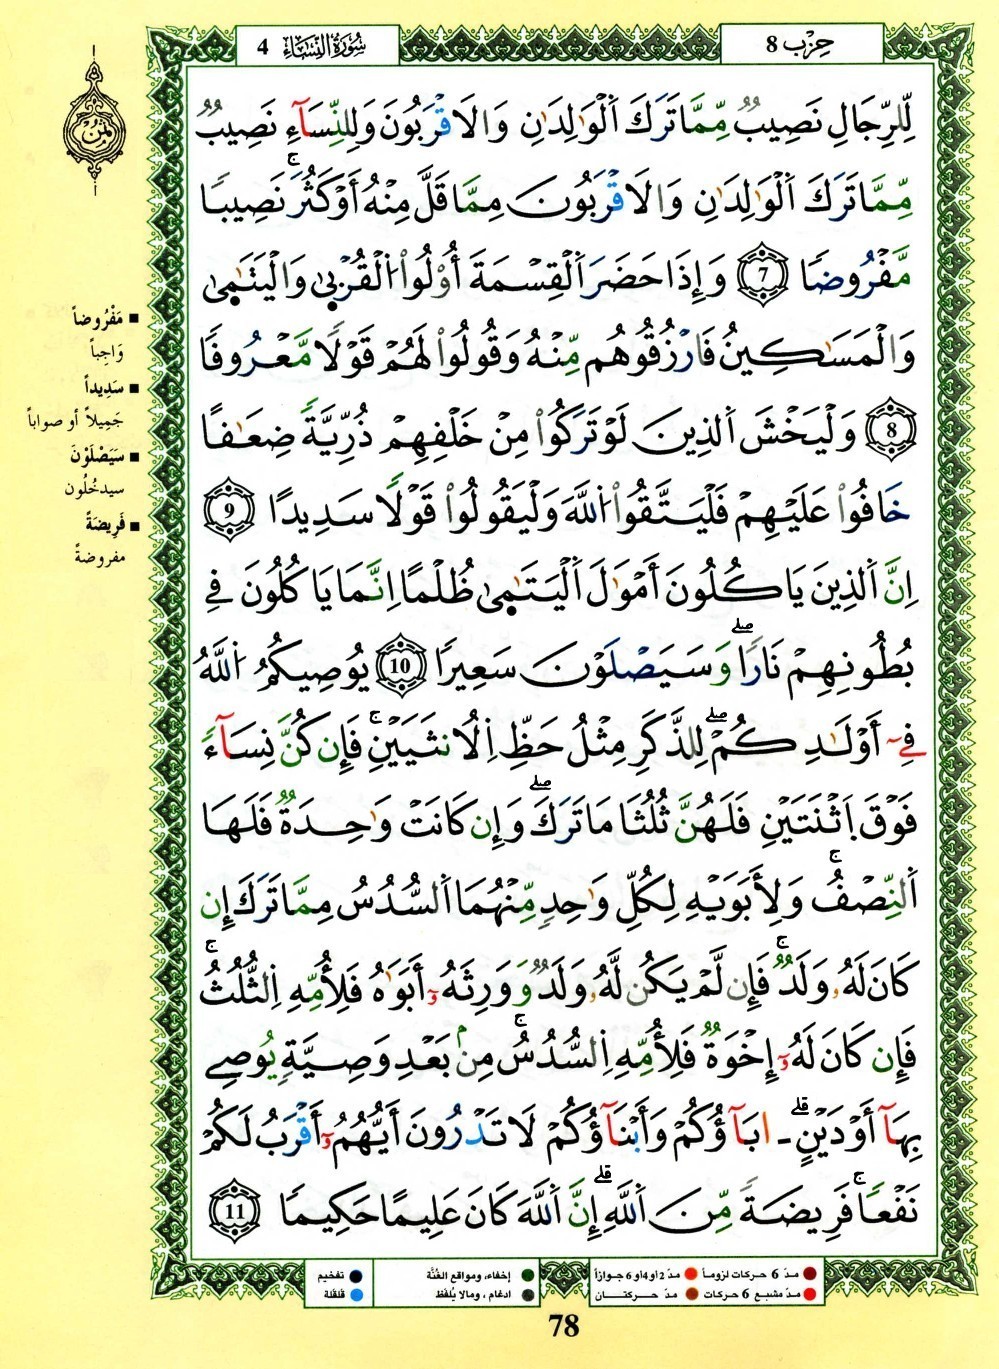 سُورَةُ النِّسَاءِ 4
حِزْب 8
لِّلرِّجَالِ نَصِيبٌ مِّمَّا تَرَكَ اَ۬لْوَٰلِدَٰنِ وَالَاقْرَبُونَ وَلِلنِّسَآءِ نَصِيبٌ
مِّمَّا تَرَكَ اَ۬لْوَٰلِدَٰنِ وَالَاقْرَبُونَ مِمَّا قَلَّ مِنْهُ أَوْ كَثُرَۚ نَصِيباٗ
مَّفْرُوضاٗ 7 وَإِذَا حَضَرَ اَ۬لْقِسْمَةَ أُوْلُواْ اُ۬لْقُرْب۪يٰ وَالْيَتَٰم۪يٰ
وَالْمَسَٰكِينُ فَارْزُقُوهُم مِّنْهُ وَقُولُواْ لَهُمْ قَوْلاٗ مَّعْرُوفاٗ
8 وَلْيَخْشَ اَ۬لذِينَ لَوْ تَرَكُواْ مِنْ خَلْفِهِمْ ذُرِّيَّةٗ ضِعَٰفاً
خَافُواْ عَلَيْهِمْ فَلْيَتَّقُواْ اُ۬للَّهَ وَلْيَقُولُواْ قَوْلاٗ سَدِيداً 9
اِنَّ اَ۬لذِينَ يَاكُلُونَ أَمْوَٰلَ اَ۬لْيَتَٰم۪يٰ ظُلْماً اِنَّمَا يَاكُلُونَ فِے
بُطُونِهِمْ نَاراٗۖ وَسَيَصْلَوْنَ سَعِيراٗ 10 يُوصِيكُمُ اُ۬للَّهُ
فِےٓ أَوْلَٰدِكُمْۖ لِلذَّكَرِ مِثْلُ حَظِّ اِ۬لُانثَيَيْنِۚ فَإِن كُنَّ نِسَآءٗ
فَوْقَ اَ۪ثْنَتَيْنِ فَلَهُنَّ ثُلُثَا مَا تَرَكَۖ وَإِن كَانَتْ وَٰحِدَةٞ فَلَهَا
اَ۬لنِّصْفُۚ وَلِأَبَوَيْهِ لِكُلِّ وَٰحِدٖ مِّنْهُمَا اَ۬لسُّدُسُ مِمَّا تَرَكَ إِن
كَانَ لَهُۥ وَلَدٞۚ فَإِن لَّمْ يَكُن لَّهُۥ وَلَدٞ وَوَرِثَهُۥٓ أَبَوَٰهُ فَلِأُمِّهِ اِ۬لثُّلُثُۚ
فَإِن كَانَ لَهُۥٓ إِخْوَةٞ فَلِأُمِّهِ اِ۬لسُّدُسُۚ مِنۢ بَعْدِ وَصِيَّةٖ يُوصِے
بِهَآ أَوْ دَيْنٍۗ ـ ابَآؤُكُمْ وَأَبْنَآؤُكُمْ لَا تَدْرُونَ أَيُّهُمُۥٓ أَقْرَبُ لَكُمْ
نَفْعاٗۚ فَرِيضَةٗ مِّنَ اَ۬للَّهِۗ إِنَّ اَ۬للَّهَ كَانَ عَلِيماً حَكِيماٗ 11
ثُمُن
■ مَفْرُوضاً
وَاجِباً
■ سَدِيداً
جَمِيلاً أو صواباً
■ سَيَصْلَوْنَ
سيدخُلُون
■ فَرِيضَةً
مفروضةً
مدّ 6 حركات لزوماً مدّ 2 أو 4 أو 6 جوازاً إخفاء، ومواقع الغُنَّة تفخيم
مدّ مشبع 6 حركات مدّ حركتـان ادغام ، ومالا يُلفظ قلقلة
78